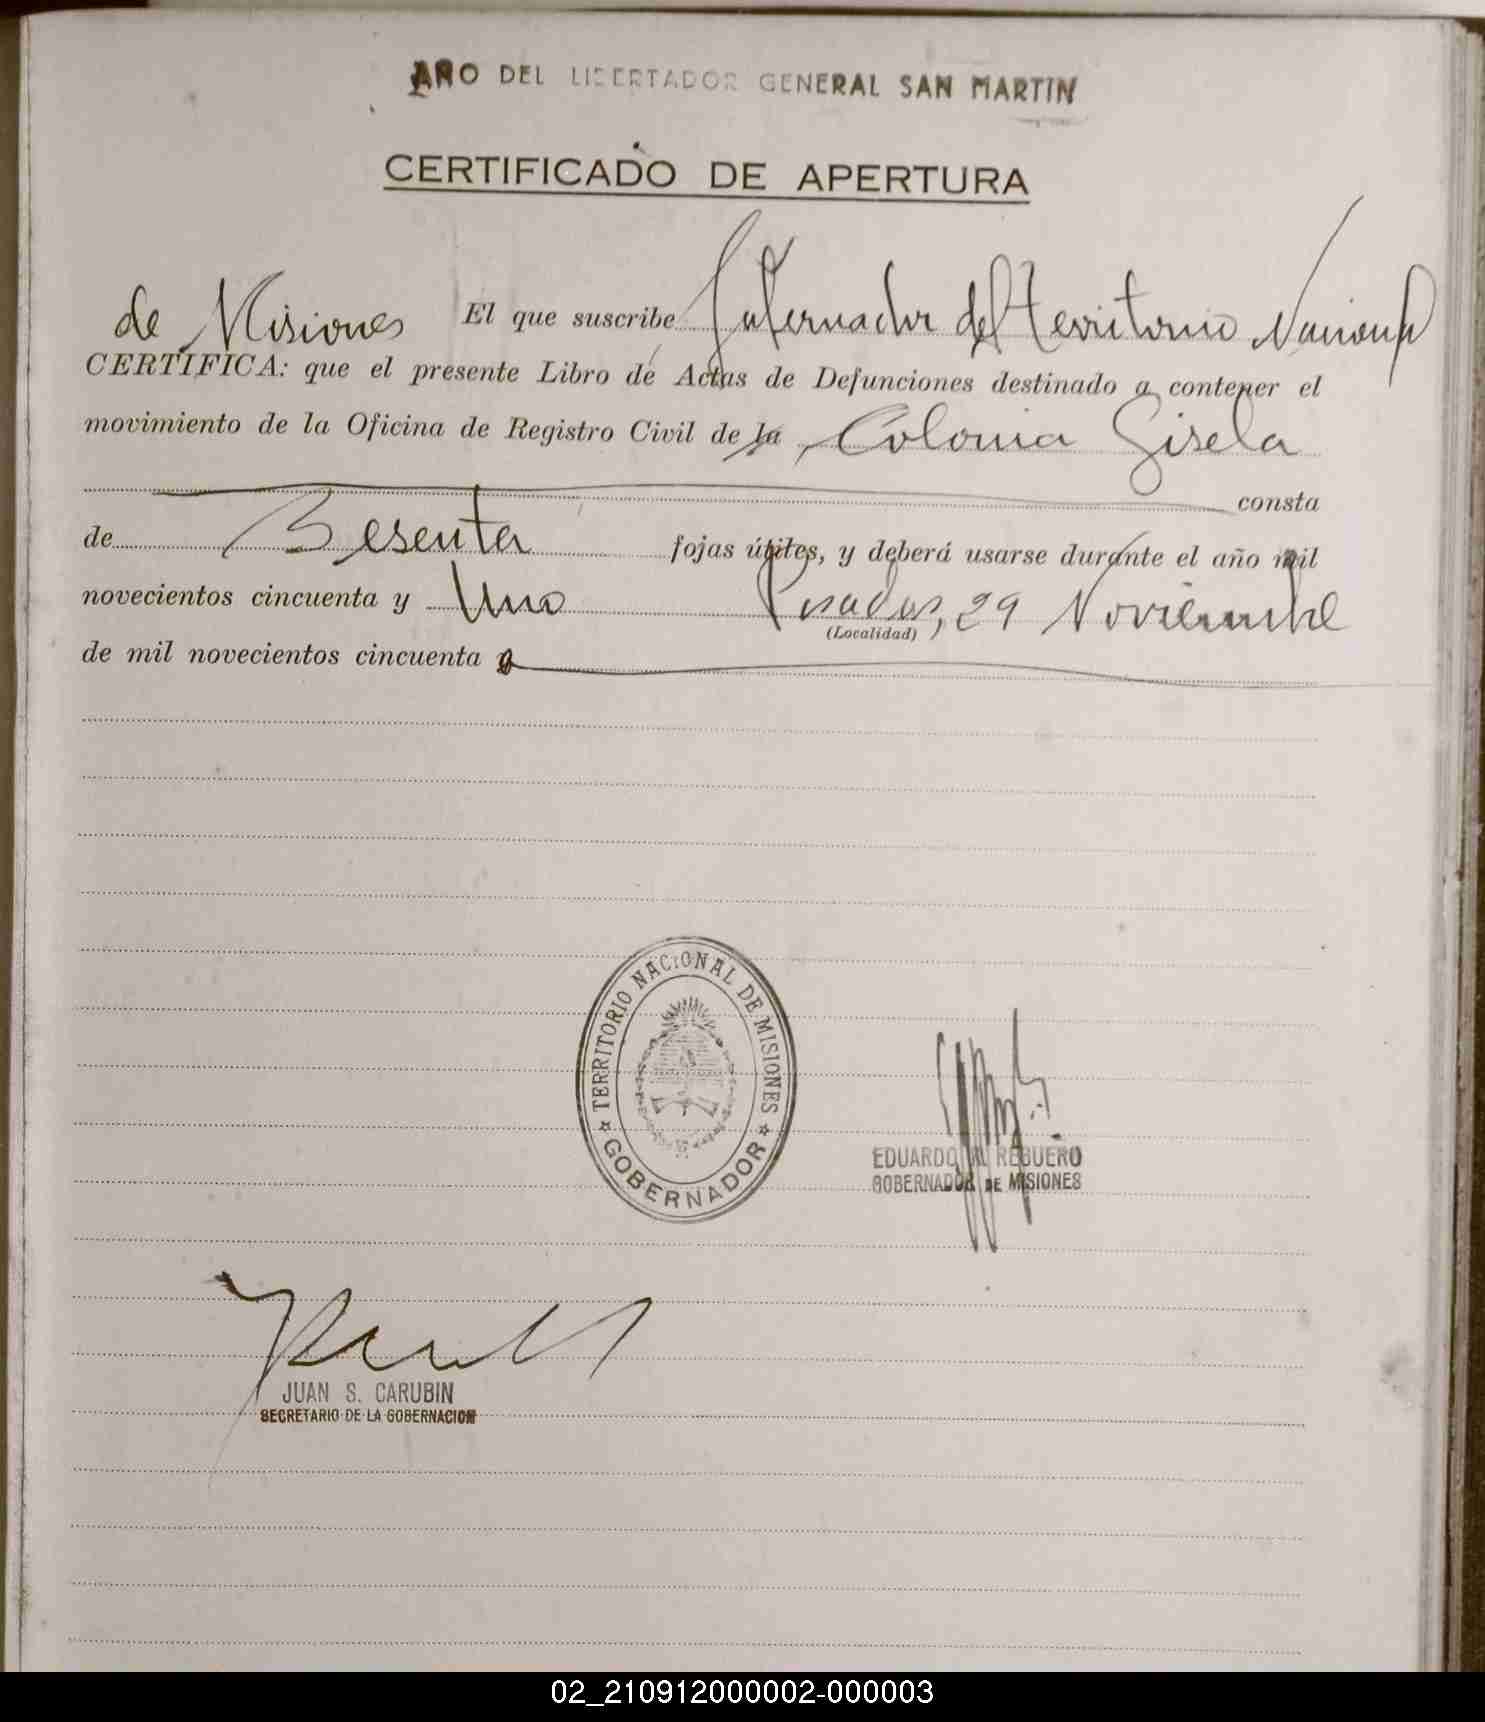 AÑO DEL LIBERTADOR GENERAL SAN MARTIN
CERTIFICADO DE APERTURA
El que suscribe Gobernador del Territorio Nacional
de Misiones
CERTIFICA: que el presente Libro de Actas de Defunciones destinado a contener el
movimiento de la Oficina de Registro Civil de la Colonia Gisela
consta
de Sesenta fojas útiles, y deberá usarse durante el año mil
novecientos cincuenta y Uno Posadas, 29 Noviembre
(Localidad)
de mil novecientos cincuenta
TERRITORIO NACIONAL DE MISIONES
GOBERNADOR
EDUARDO REGUERO
GOBERNADOR DE MISIONES
JUAN S. CARUBIN
SECRETARIO DE LA GOBERNACION
02_210912000002-000003